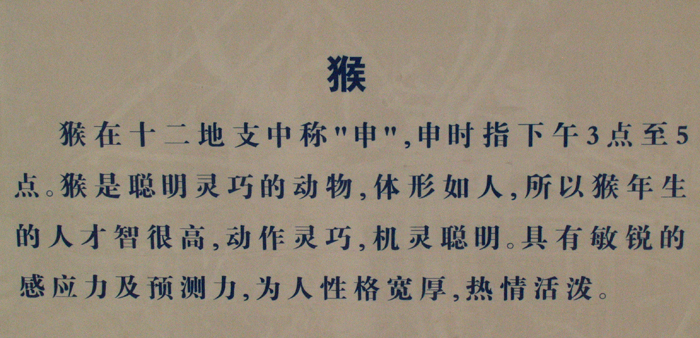 猴
猴在十二地支中称"申",申时指下午3点至5
点。猴是聪明灵巧的动物,体形如人,所以猴年生
的人才智很高,动作灵巧,机灵聪明。具有敏锐的
感应力及预测力,为人性格宽厚,热情活泼。